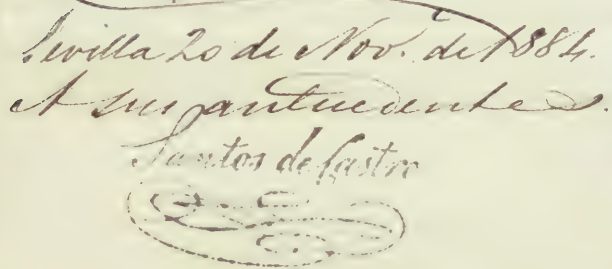 Sevilla 20 de Nov. de 1884.
A sus antecedentes
Santos de Castro